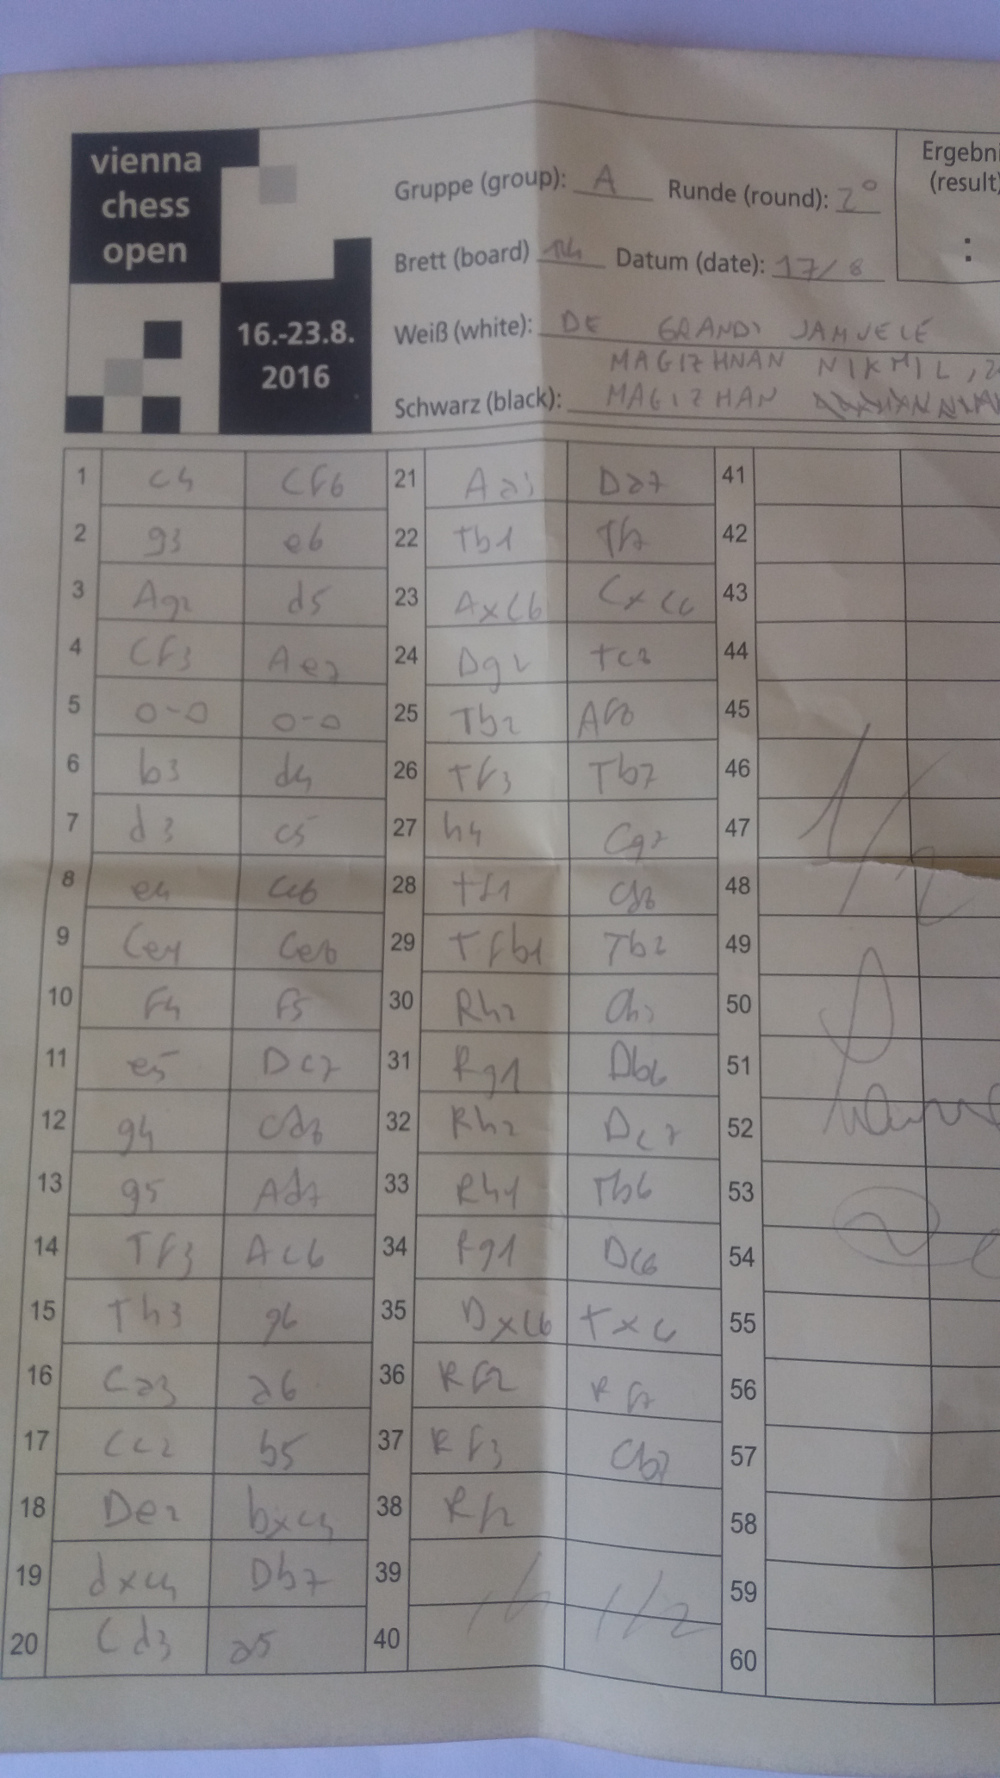 vienna
chess
open
16.-23.8.
2016
Gruppe (group): A Runde (round): 2°
Brett (board) 14 Datum (date): 17/8
Ergebni
(result)
:
Weiß (white): DE GRANDI
MAGIZHNAN NIKHIL
Schwarz (black): MAGIZHAN
1 c4 Cf6 21 Aa3 Da7 41
2 g3 e6 22 Tb1 42
3 Ag2 d5 23 Axc6 Cxc6 43
4 Cf3 Ae7 24 Dg2 Tc8 44
5 0-0 0-0 25 Tb2 Af8 45
6 b3 d4 26 Tf3 Tb7 46
7 d3 c5 27 h4 Cg7 47
8 e4 Cc6 28 Tf1 Cd8 48
9 Ce1 Ce8 29 Tfb1 49
10 f4 f5 30 Rh2 50
11 e5 Dc7 31 Rg1 Db6 51
12 g4 Cd8 32 Rh2 Dc7 52
13 g5 Ad7 33 Rh1 Tb6 53
14 Tf3 Ac6 34 Rg1 Dc6 54
15 Th3 g6 35 Dxc6 Txc6 55
16 Ca3 a6 36 Rf2 Rf7 56
17 Cc2 b5 37 Rf3 Cb7 57
18 De2 bxc4 38 Rf2 58
19 dxc4 Db7 39 59
20 Cd3 a5 40 1/2 60
1/2